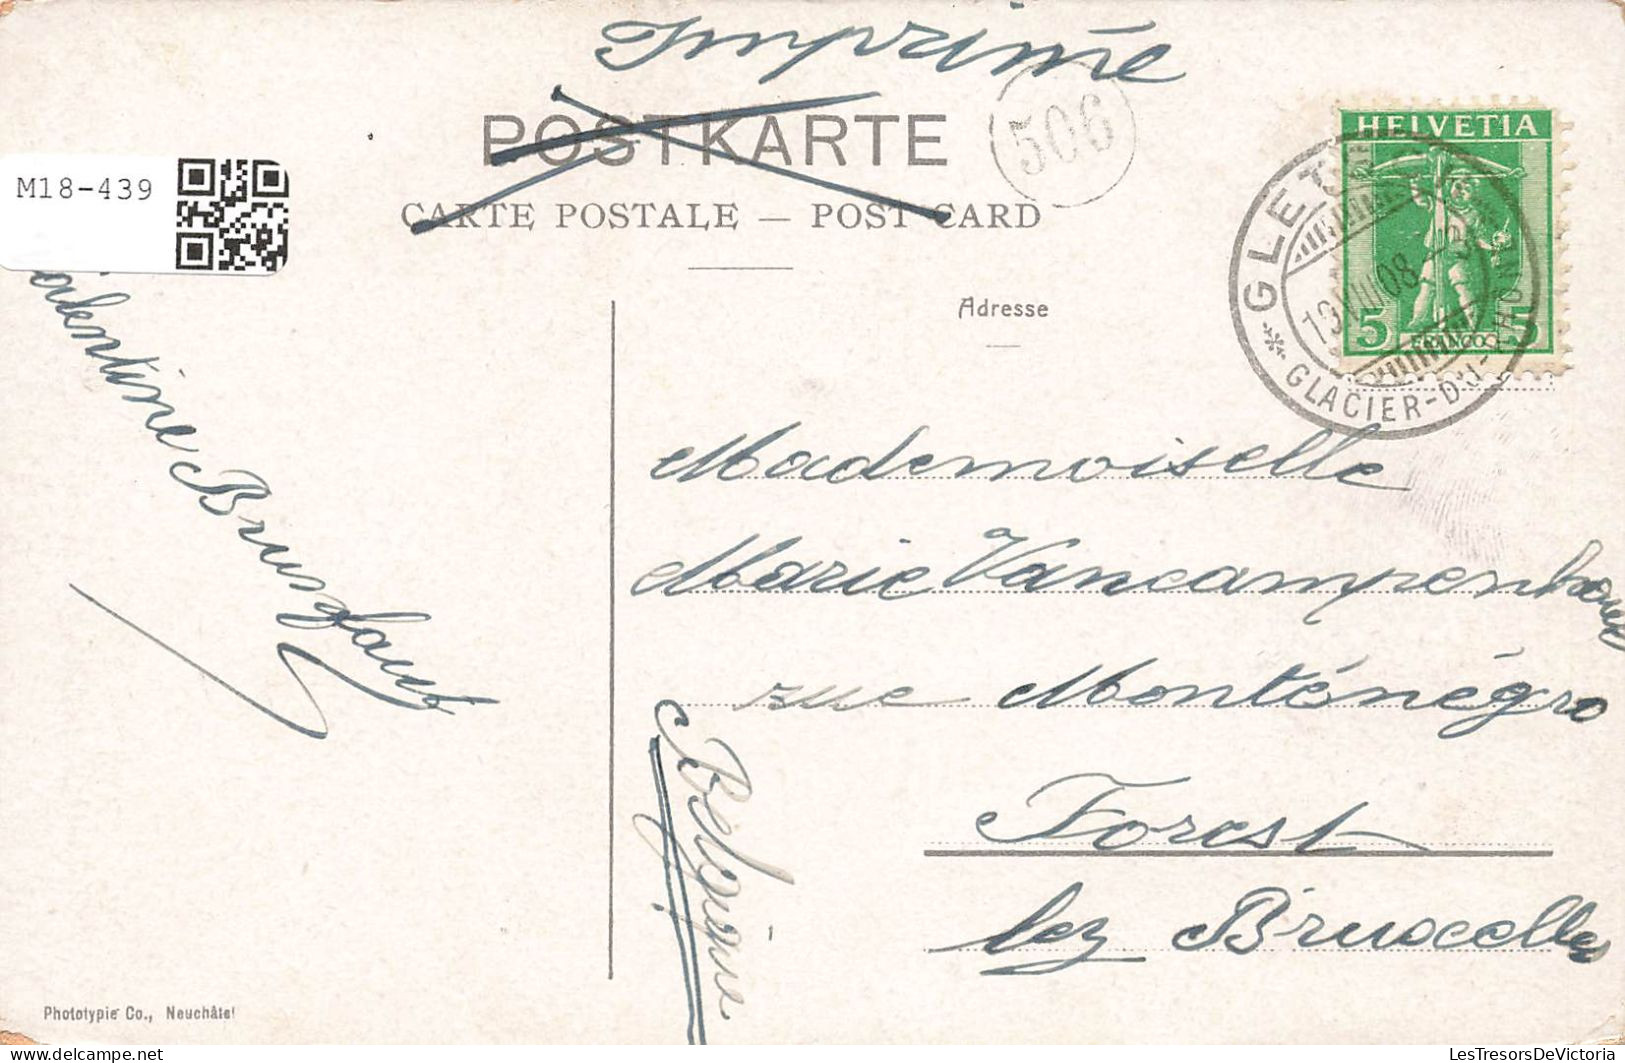 Imprimé
POSTKARTE
506
CARTE POSTALE — POST CARD
M18-439
HELVETIA
5 FRANCO 5
GLETSCH
13 VIII 08
GLACIER-DU-RHONE
Adresse
Valentine Brunfaut
Mademoiselle
Marie Vancampenhout
rue Monténégro
Forest
lez Bruxelles
Belgique
Phototypie Co., Neuchâtel
LesTresorsDeVictoria